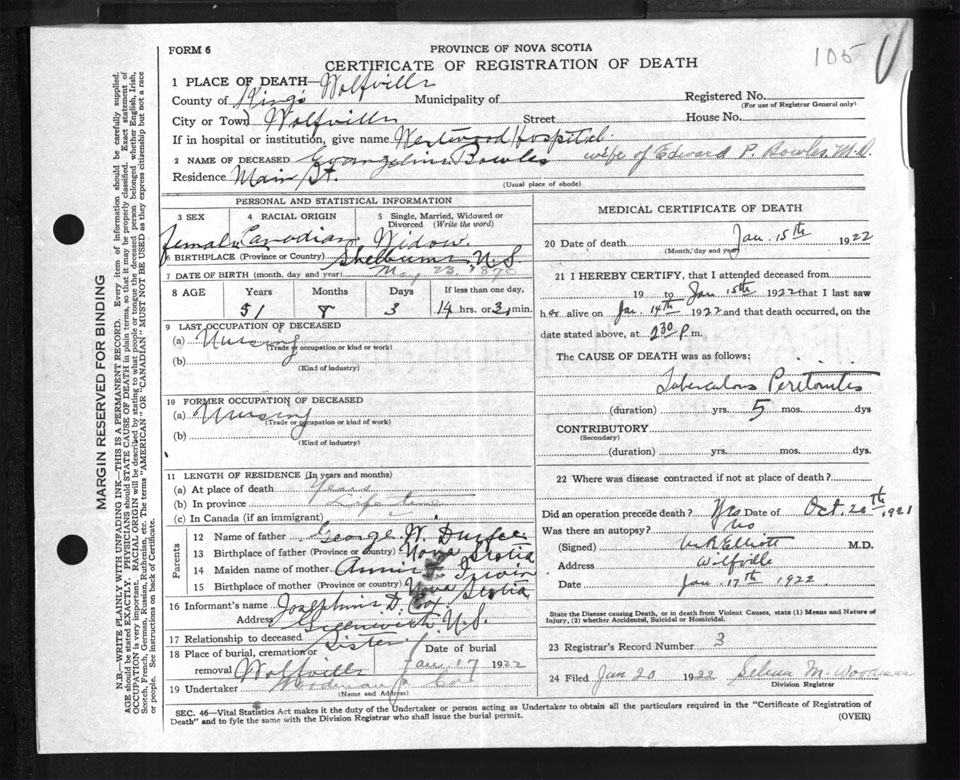 FORM 6
PROVINCE OF NOVA SCOTIA
105
CERTIFICATE OF REGISTRATION OF DEATH
1 PLACE OF DEATH—Wolfville
County of Kings Municipality of Registered No.
(For use of Registrar General only)
City or Town Wolfville Street House No.
If in hospital or institution, give name Westwood Hospital.
2 NAME OF DECEASED Evangeline Bowles wife of Edward P. Bowles M.D.
Residence Main St.
(Usual place of abode)
PERSONAL AND STATISTICAL INFORMATION
3 SEX 4 RACIAL ORIGIN 5 Single, Married, Widowed or Divorced (Write the word)
female Canadian Widow.
6 BIRTHPLACE (Province or Country) Shelburne N.S.
7 DATE OF BIRTH (month, day, and year) May 23, 1870
8 AGE Years Months Days If less than one day,
51 8 3 14 hrs. or 3 min.
9 LAST OCCUPATION OF DECEASED
(a) Nursing
(Trade or occupation or kind or work)
(b)
(Kind of industry)
10 FORMER OCCUPATION OF DECEASED
(a) Nursing
(Trade or occupation or kind or work)
(b)
(Kind of industry)
11 LENGTH OF RESIDENCE (In years and months)
(a) At place of death Years
(b) In province Life time
(c) In Canada (if an immigrant)
Parents
12 Name of father George W. Durfee
13 Birthplace of father (Province or Country) Nova Scotia
14 Maiden name of mother Annie Irwin
15 Birthplace of mother (Province or country) Nova Scotia
16 Informant's name Josephine D. Cox.
Address Greenwich N.S.
17 Relationship to deceased Sister
18 Place of burial, cremation or removal Wolfville Date of burial Jan. 17 1922
19 Undertaker Woodman & Co
(Name and Address)
MEDICAL CERTIFICATE OF DEATH
20 Date of death Jan. 15th 1922
(Month, day and year)
21 I HEREBY CERTIFY, that I attended deceased from
19 to Jan 15th 1922 that I last saw
her alive on Jan. 14th 1922 and that death occurred, on the
date stated above, at 2 30 P. m.
The CAUSE OF DEATH was as follows:
Tuberculous Peritonitis
(duration) yrs. 5 mos. dys
CONTRIBUTORY
(Secondary)
(duration) yrs. mos. dys.
22 Where was disease contracted if not at place of death?
Did an operation precede death? Yes Date of Oct. 20th 1921
Was there an autopsy? no
(Signed) Elliott M.D.
Address Wolfville
Date Jan. 17th 1922.
State the Disease causing Death, or in death from Violent Causes, state (1) Means and Nature of
Injury, (2) whether Accidental, Suicidal or Homicidal.
23 Registrar's Record Number 3
24 Filed Jan 20 1922 Selina M. Woodman
Division Registrar
SEC. 46—Vital Statistics Act makes it the duty of the Undertaker or person acting as Undertaker to obtain all the particulars required in the "Certificate of Registration of
Death" and to fyle the same with the Division Registrar who shall issue the burial permit. (OVER)
MARGIN RESERVED FOR BINDING
N.B.—WRITE PLAINLY WITH UNFADING INK—THIS IS A PERMANENT RECORD. Every item of information should be carefully supplied.
AGE should be stated EXACTLY. PHYSICIANS should STATE CAUSE OF DEATH in plain terms, so that it may be properly classified. Exact statement of
OCCUPATION is very important. RACIAL ORIGIN will be described by stating to what people or tongue the deceased person belonged whether English, Irish,
Scotch, French, German, Russian, Ruthenian, etc. The terms "AMERICAN" OR "CANADIAN" MUST NOT BE USED as they express citizenship but not a race
or people. See instructions on back of Certificate.